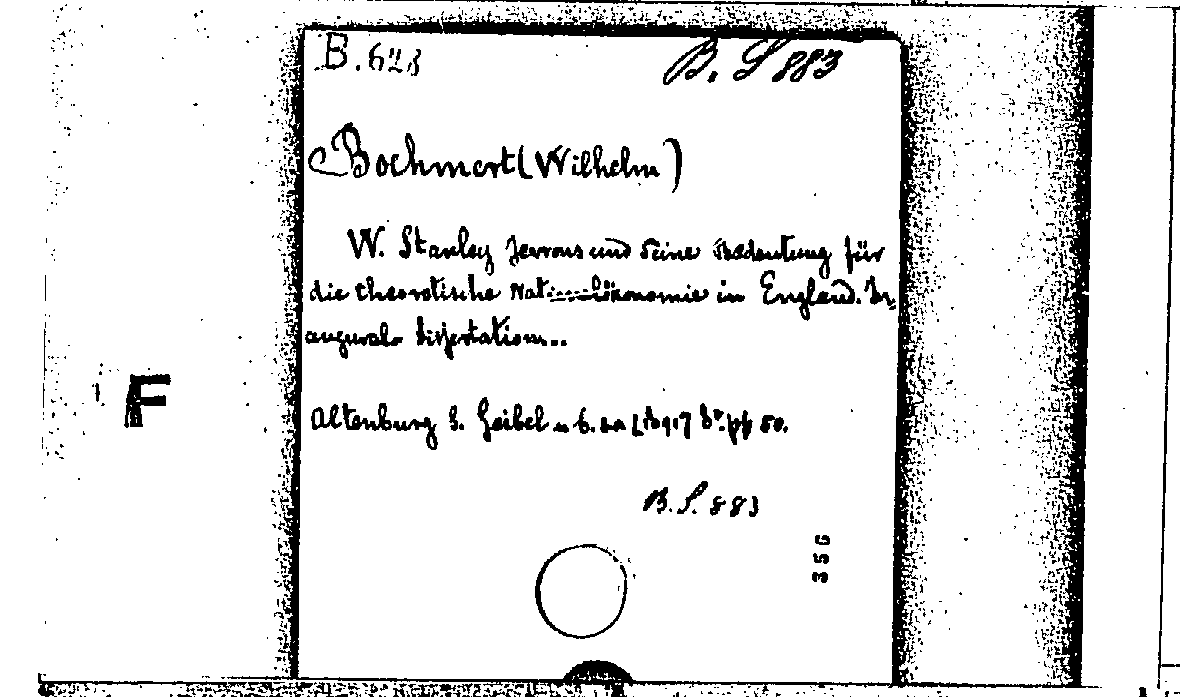 B. 623 B. S 883
Boehmert (Wilhelm)
W. Stanley Jevons und seine Bedeutung für
die theoretische Nationalökonomie in England. In-
augural- Dissertation...
Altenburg S. Geibel u C. [1891] 8°. pp 50.
B. S. 883
F
356